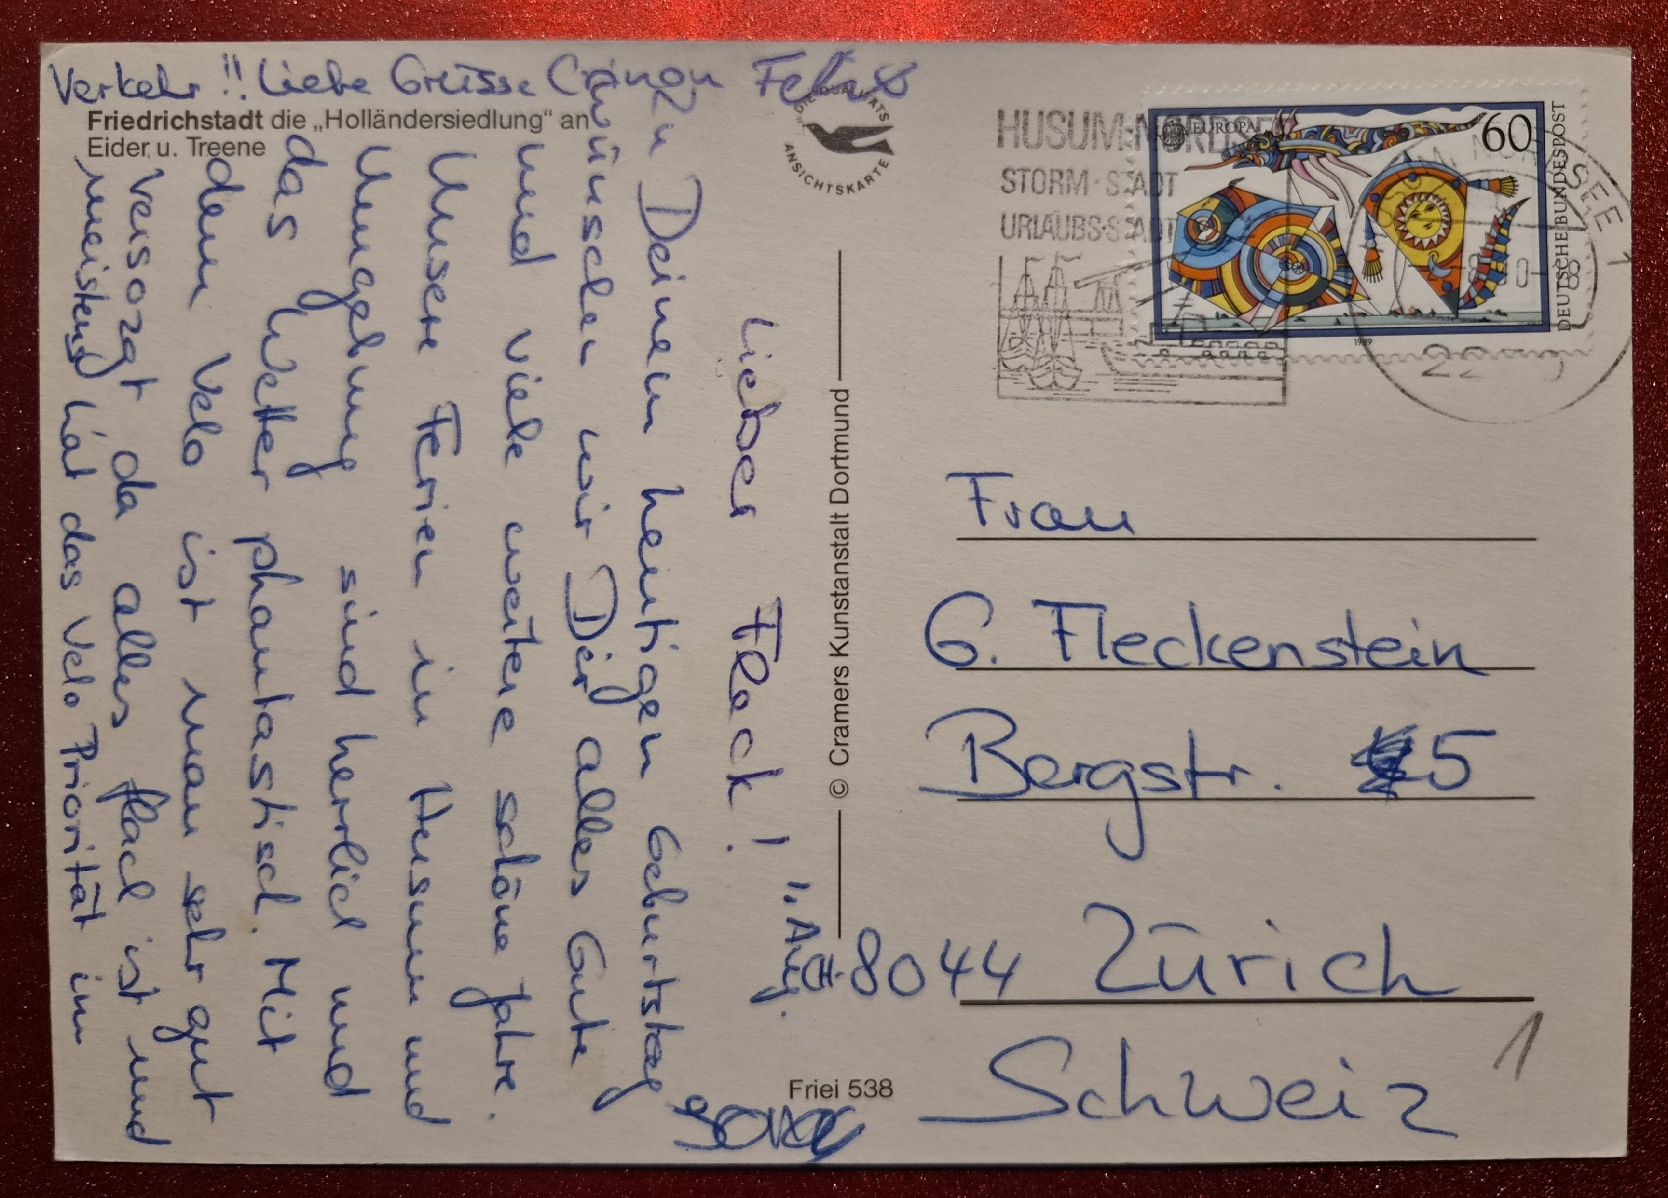 Friedrichstadt die „Holländersiedlung“ an
Eider u. Treene
DIE QUALITÄTS
ANSICHTSKARTE
HUSUM-NORDSEE
STORM-STADT
URLAUBS-STADT
EUROPA
60
DEUTSCHE BUNDESPOST
1989
NORDSEE 1
© Cramers Kunstanstalt Dortmund
Friei 538
1. Aug.
Lieber Fleck!
Zu Deinem heutigen Geburtstag
wünschen wir Dir alles Gute
und viele weitere schöne Jahre.
Unsere Ferien in Husum und
Umgebung sind herrlich und
das Wetter phantastisch. Mit
dem Velo ist man sehr gut
versorgt da alles flach ist und
meistens hat das Velo Priorität im
Verkehr!! Liebe Grüsse
Frau
G. Fleckenstein
Bergstr. 5
CH-8044 Zürich
Schweiz
1